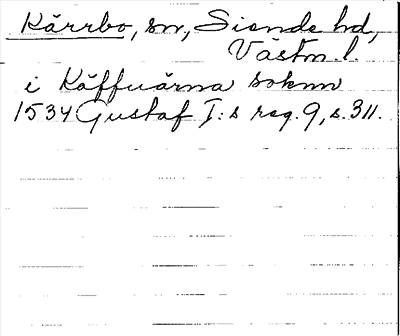 Kärrbo, sn, Siende hd,
Västm l.
i Käffuärna soknn
1534 Gustaf I:s reg. 9, s. 311.